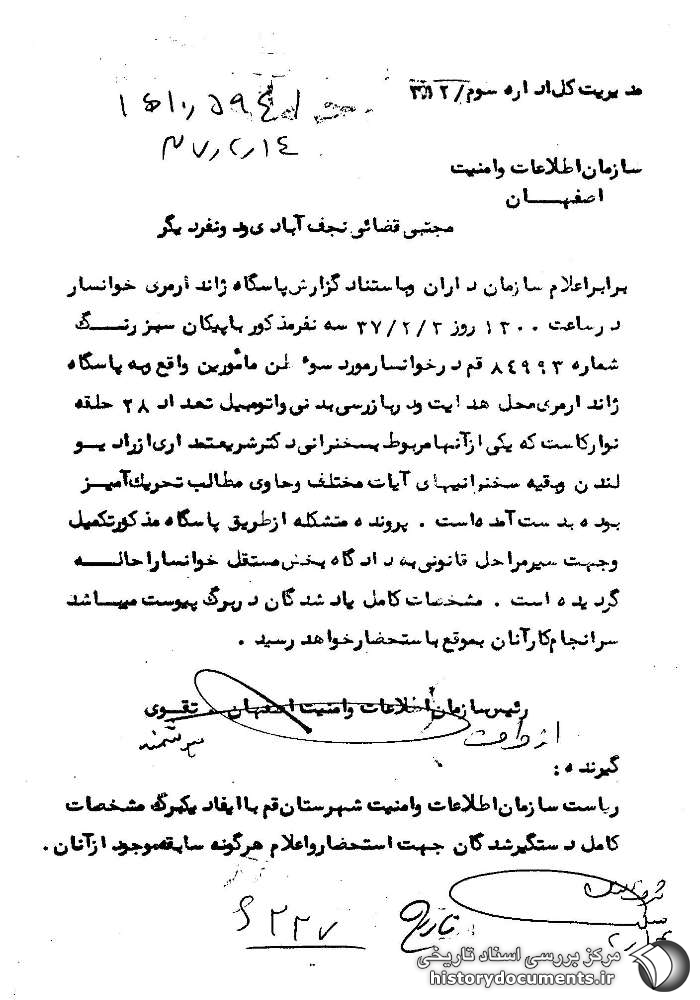 مدیریت کل اداره سوم/ ۳۱۲
۱۵۱۰ر۵۹٤
۴۷ر۲ر۱٤
سازمان اطلاعات و امنیت
اصفهــــان
مجتبی قضائی نجف آبادی و دو نفر دیگر
برابر اعلام سازمان داران و باستناد گزارش پاسگاه ژاندارمری خوانسار
در ساعت ۱۳۰۰ روز ۳۷/۲/۲ سه نفر مذکور با پیکان سبز رنـــگ
شماره ۸٤۹۹۳ قم در خوانسار مورد سوء ظن مأمورین واقع و به پاسگاه
ژاندارمری محل هدایت و در بازرسی بدنی و اتومبیل تعداد ۲۸ حلقه
نوار کاست که یکی از آنها مربوط بسخنرانی دکتر شریعتمداری از رادیو
لندن و بقیه سخنرانیهای آیات مختلف و حاوی مطالب تحریک آمیــز
بوده بدست آمده است . پرونده متشکله از طریق پاسگاه مذکور تکمیل
و جهت سیر مراحل قانونی به دادگاه بخش مستقل خوانسار احالـــه
گردیده است . مشخصات کامل یاد شدگان در برگ پیوست میبـاشد
سرانجام کار آنان بموقع باستحضار خواهد رسید .
رئیس سازمان اطلاعات و امنیت اصفهان ـ تقـــوی
از طرف
گیرنده :
ریاست سازمان اطلاعات و امنیت شهرستان قم با ایفاد یکبرگ مشخصات
کامل دستگیر شدگان جهت استحضار و اعلام هرگونه سابقه موجود از آنان .
تاریخ
۲۲۷
مرکز بررسی اسناد تاریخی
historydocuments.ir